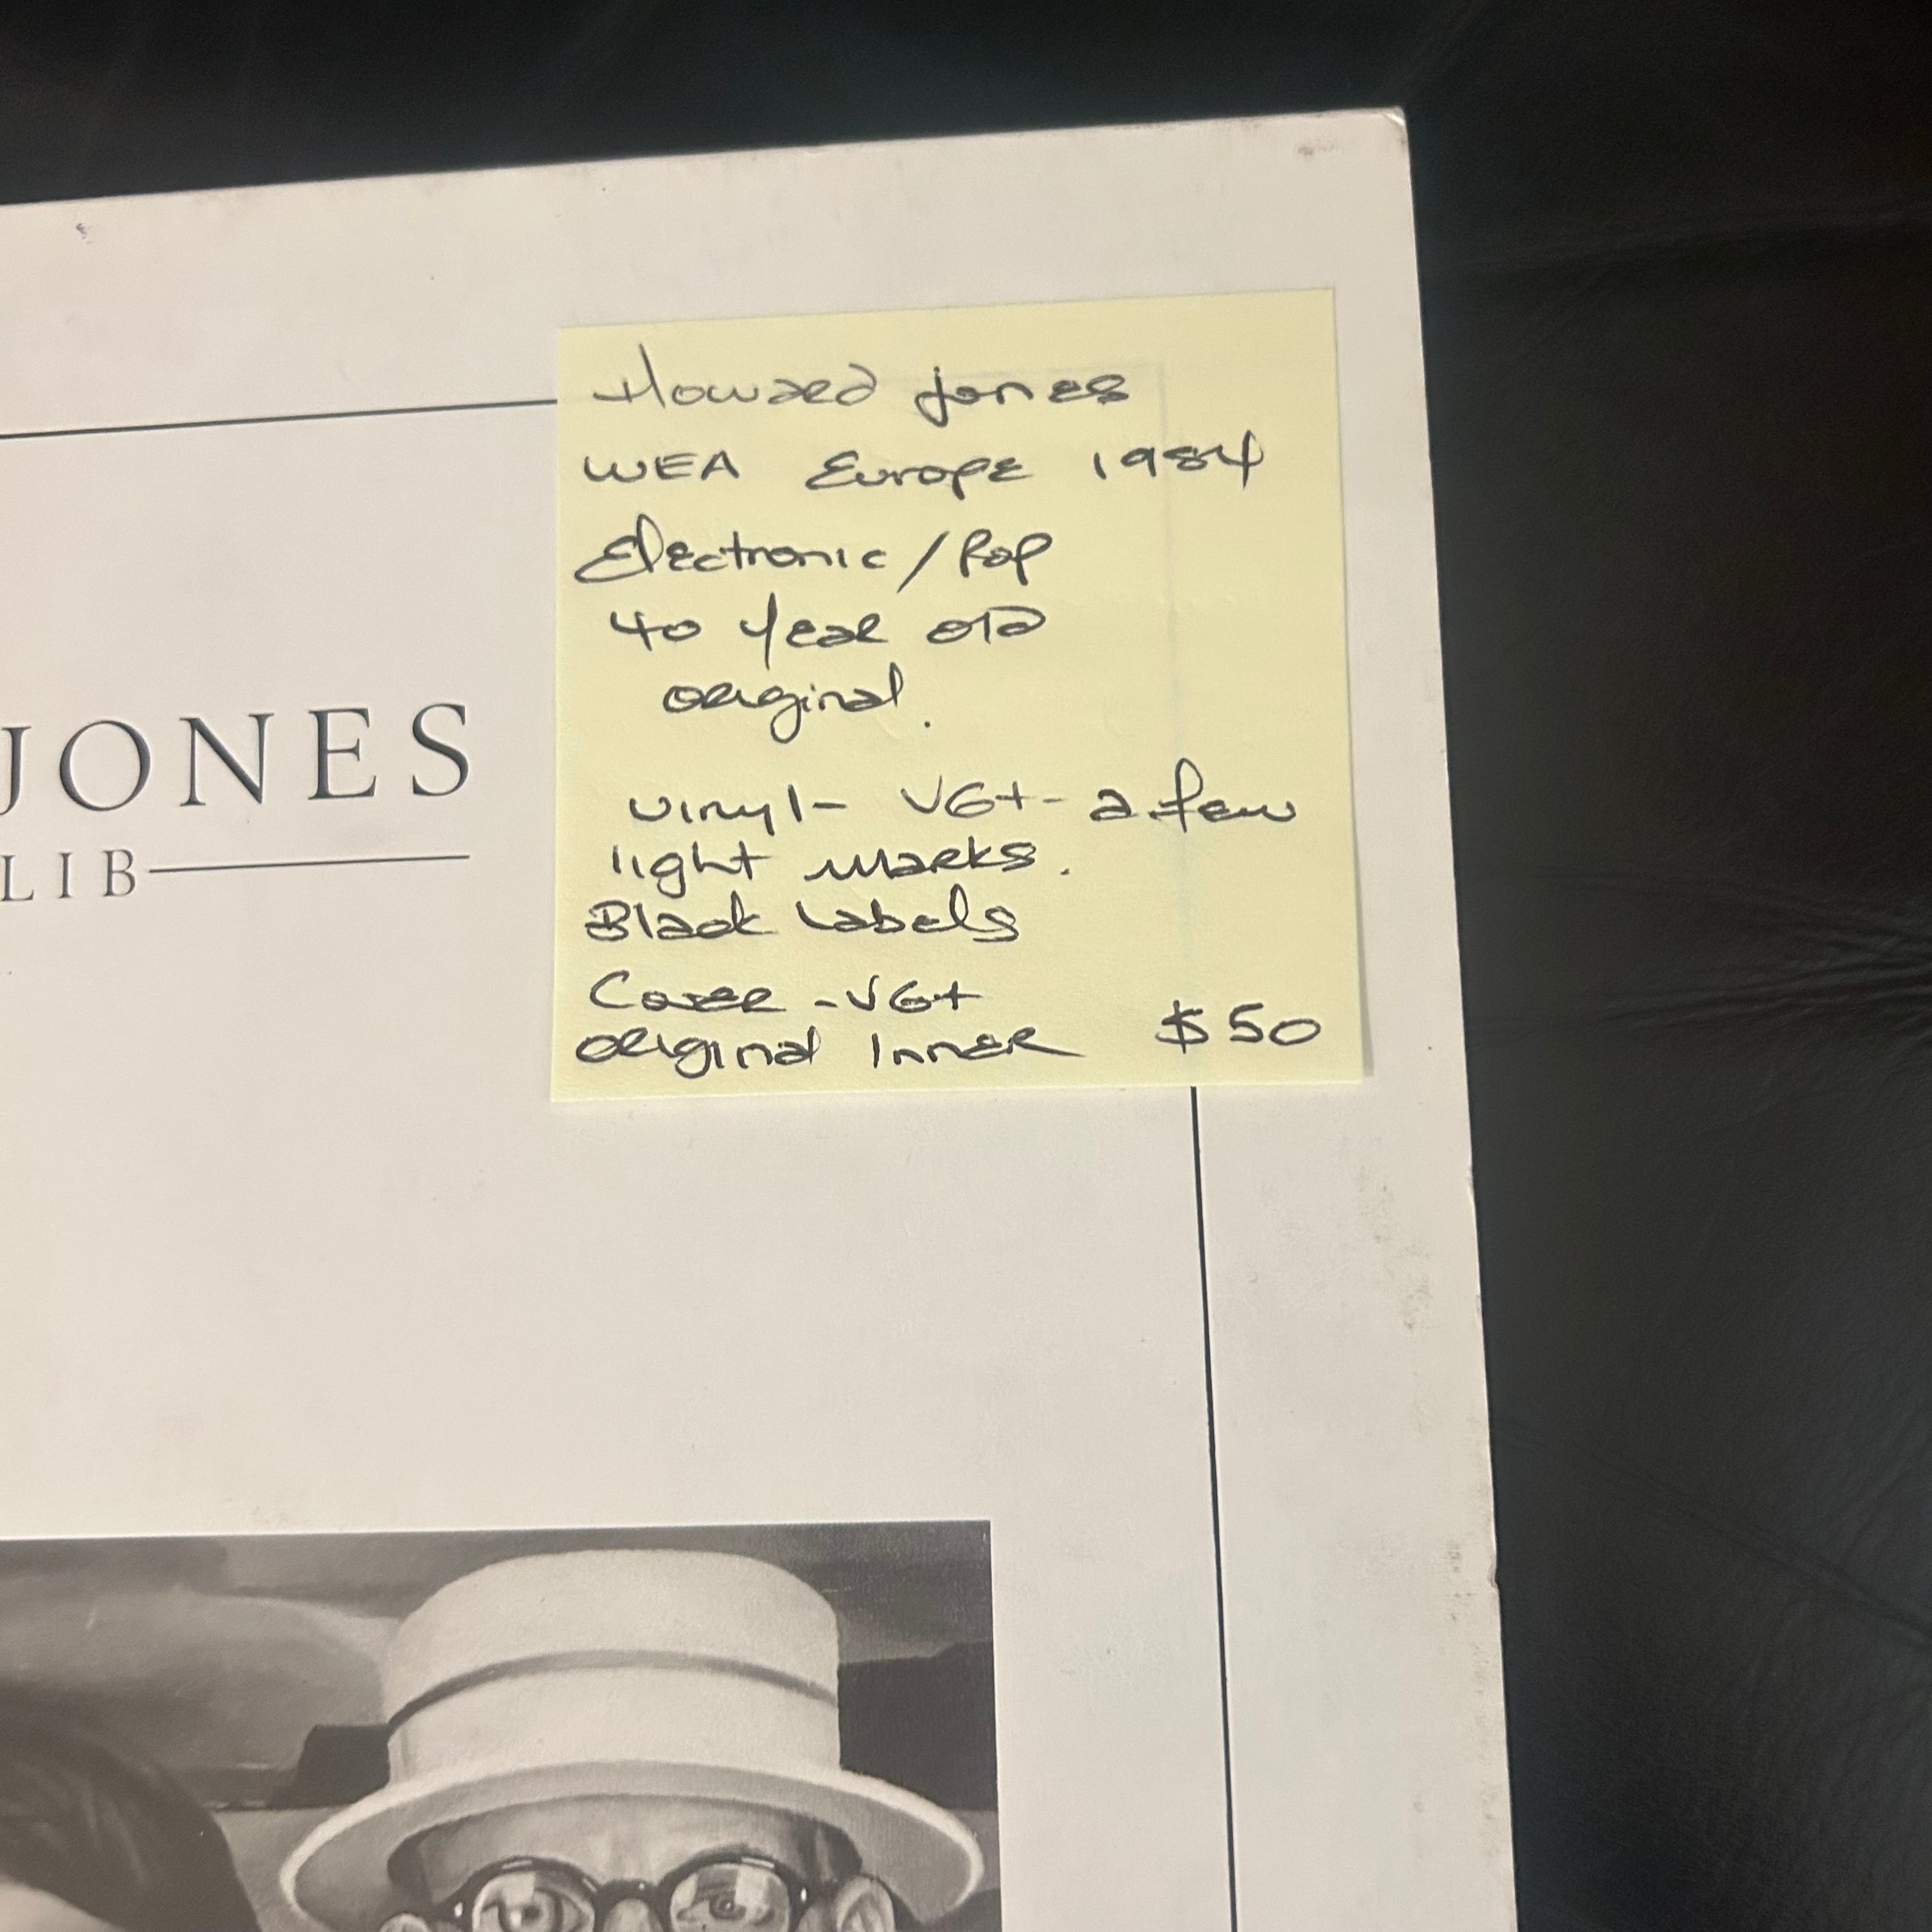 Howard Jones
WEA Europe 1984
Electronic/Pop
40 Year old
original.
Vinyl- VG+- a few
light marks.
Black Labels
Cover - VG+
original Inner $50
JONES
LIB